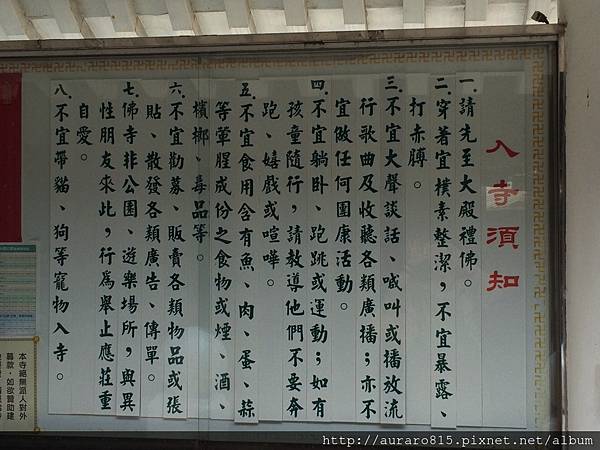 入寺須知
一.請先至大殿禮佛。
二.穿着宜樸素整潔，不宜暴露、
打赤膊。
三.不宜大聲談話、喊叫或播放流
行歌曲及收聽各類廣播；亦不
宜做任何團康活動。
四.不宜躺卧、跑跳或運動；如有
孩童隨行，請教導他們不要奔
跑、嬉戲或喧嘩。
五.不宜食用含有魚、肉、蛋、蒜
等葷腥成份之食物或煙、酒、
檳榔、毒品等。
六.不宜勸募、販賣各類物品或張
貼、散發各類廣告、傳單。
七.佛寺非公園、遊樂場所，與異
性朋友來此，行爲舉止應莊重
自愛。
八.不宜帶貓、狗等寵物入寺。
本寺絕無派人對外
募款，如欲贊助建
http://auraro815.pixnet.net/album